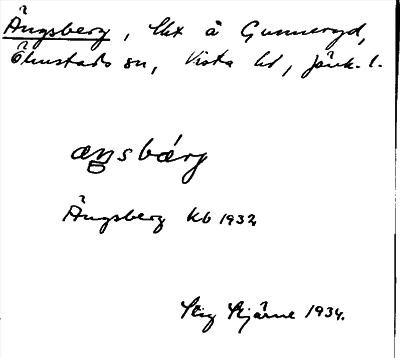 Ängsberg, lht å Gunneryd,
Ölmstads sn, Vista hd, Jönk. l.
æŋsbærg
Ängsberg Kb 1932
Stig Stjärne 1934.